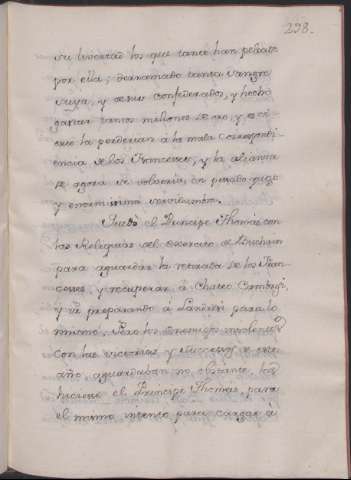 238.
su livertad los que tanto han peleado
por ella; derramado tanta sangre
suya, y de sus confederados, y hecho
gastar tantos millones de oro, y
que la perderian á la mala correspond-
encia de los Franceses, y la alianza
de agora se volveria, en pesado yugo
y enemissima
Juntó el Principe Thomas con
las Reliquias del exercito de
para aguardar la retirada de los Fran
ceses, y recuperar á Chateo Cambresi,
y va preparando á Landresi para lo
mismo. Pero los enemigos insolentes
con las victorias y sucesos de este
año, aguardaban no obstante, los
hiciese el Principe Thomas, para
el mismo intento para cargar á